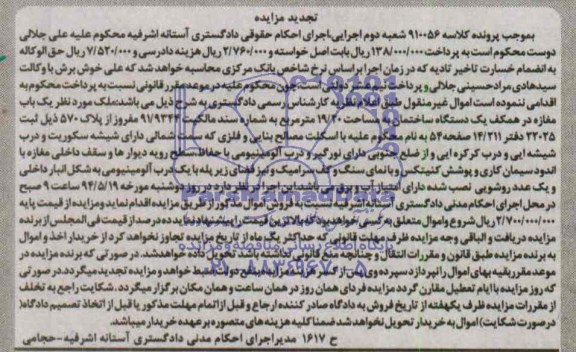 تجدید مزایده
بموجب پرونده کلاسه ۹۱۰۰۵۶ شعبه دوم اجرایی،اجرای احکام حقوقی دادگستری آستانه اشرفیه محکوم علیه علی جلالی
دوست محکوم است به پرداخت ۱۳۸/۰۰۰/۰۰۰ ریال بابت اصل خواسته و ۲/۷۶۰/۰۰۰ ریال هزینه دادرسی و ۷/۵۲۰/۰۰۰ ریال حق الوکاله
به انضمام خسارت تاخیر تادیه که در زمان اجرا براساس نرخ شاخص بانک مرکزی محاسبه خواهد شد که علی خوش برش با وکالت
سیدهادی مرادحسینی جلالی و پرداخت نیم عشر دولتی است.چون محکوم علیه در موعد مقرر قانونی نسبت به پرداخت محکوم به
اقدامی ننموده است اموال غیر منقول طبق اعلام نظریه کارشناس رسمی دادگستری به شرح ذیل می باشد:ملک مورد نظر یک باب
مغازه در همکف یک دستگاه ساختمان به مساحت ۱۹/۲۰ مترمربع به شماره سند مالکیت ۹۱/۹۳۴۴ مفروز از پلاک ۵۷۰ ذیل ثبت
۲۲۰۲۵ دفتر ۱۴/۲۱۱ صفحه ۵۴ به نام محکوم علیه با اسکلت مصالح بنایی و فلزی که سمت شمالی دارای شیشه سکوریت و درب
شیشه ایی و درب کرکره ایی و از ضلع جنوبی دارای نورگیر و درب آلومینیومی با حفاظ،سطح رویه دیوار ها و سقف داخلی مغازه با
اندود سیمان کاری و پوشش کنیتکس و بانمای سنگ و کف سرامیک و نیز فضای زیر پله با یک درب آلومینیومی به شکل انبار داخلی
و یک عدد روشویی نصب شده دارای امتیاز آب و برق می باشد.این اجرا در نظر دارد در روز دوشنبه مورخه ۹۴/۵/۱۹ ساعت ۹ صبح
در محل اجرای احکام مدنی دادگستری آستانه اشرفیه نسبت به فروش اموال مذکور از طریق مزایده اقدام نماید و مزایده از قیمت پایه
۲/۷۰۰/۰۰۰/۰۰۰ ریال شروع و اموال متعلق به کسی خواهد بود که بالاترین قیمت را پیشنهاد نماید.ده درصد از قیمت فی المجلس از برنده
مزایده دریافت و الباقی وجه مزایده ظرف مهلت قانونی که حداکثر یک ماه از تاریخ مزایده تجاوز نخواهد کرد از خریدار اخذ و اموال
به برنده مزایده طبق قانون و مقررات انتقال و چنانچه منع قانونی نداشته باشد تحویل داده خواهدشد. در صورتی که برنده مزایده در
موعد مقرر بقیه بهای اموال را نپردازد سپرده وی پس از کسر هزینه مزایده به نفع دولت ضبط خواهد و مزایده تجدید میگردد.در صورتی
که روز مزایده با ایام تعطیل مقارن گردد مزایده فردای همان روز در همان ساعت و همان مکان برگزار میگردد .شکایت راجع به تخلف
از مقررات مزایده ظرف یکهفته از تاریخ فروش به دادگاه صادر کننده ارجاع و قبل از اتمام مهلت مذکور یا قبل از اتخاذ تصمیم دادگاه(
در صورت شکایت) اموال به خریدار تحویل نخواهد شد ضمنا کلیه هزینه های متصوره بر عهده خریدار میباشد.
ح ۱۶۱۷ مدیراجرای احکام مدنی دادگستری آستانه اشرفیه-حجامی